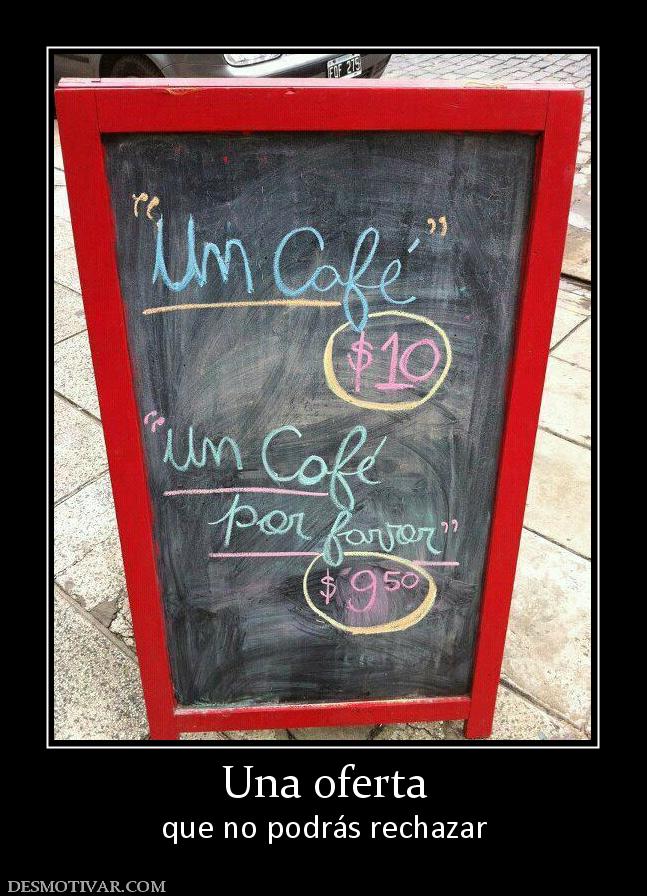 EQF 275
“Un Café”
$10
“Un Café
por favor”
$950
Una oferta
que no podrás rechazar
DESMOTIVAR.COM